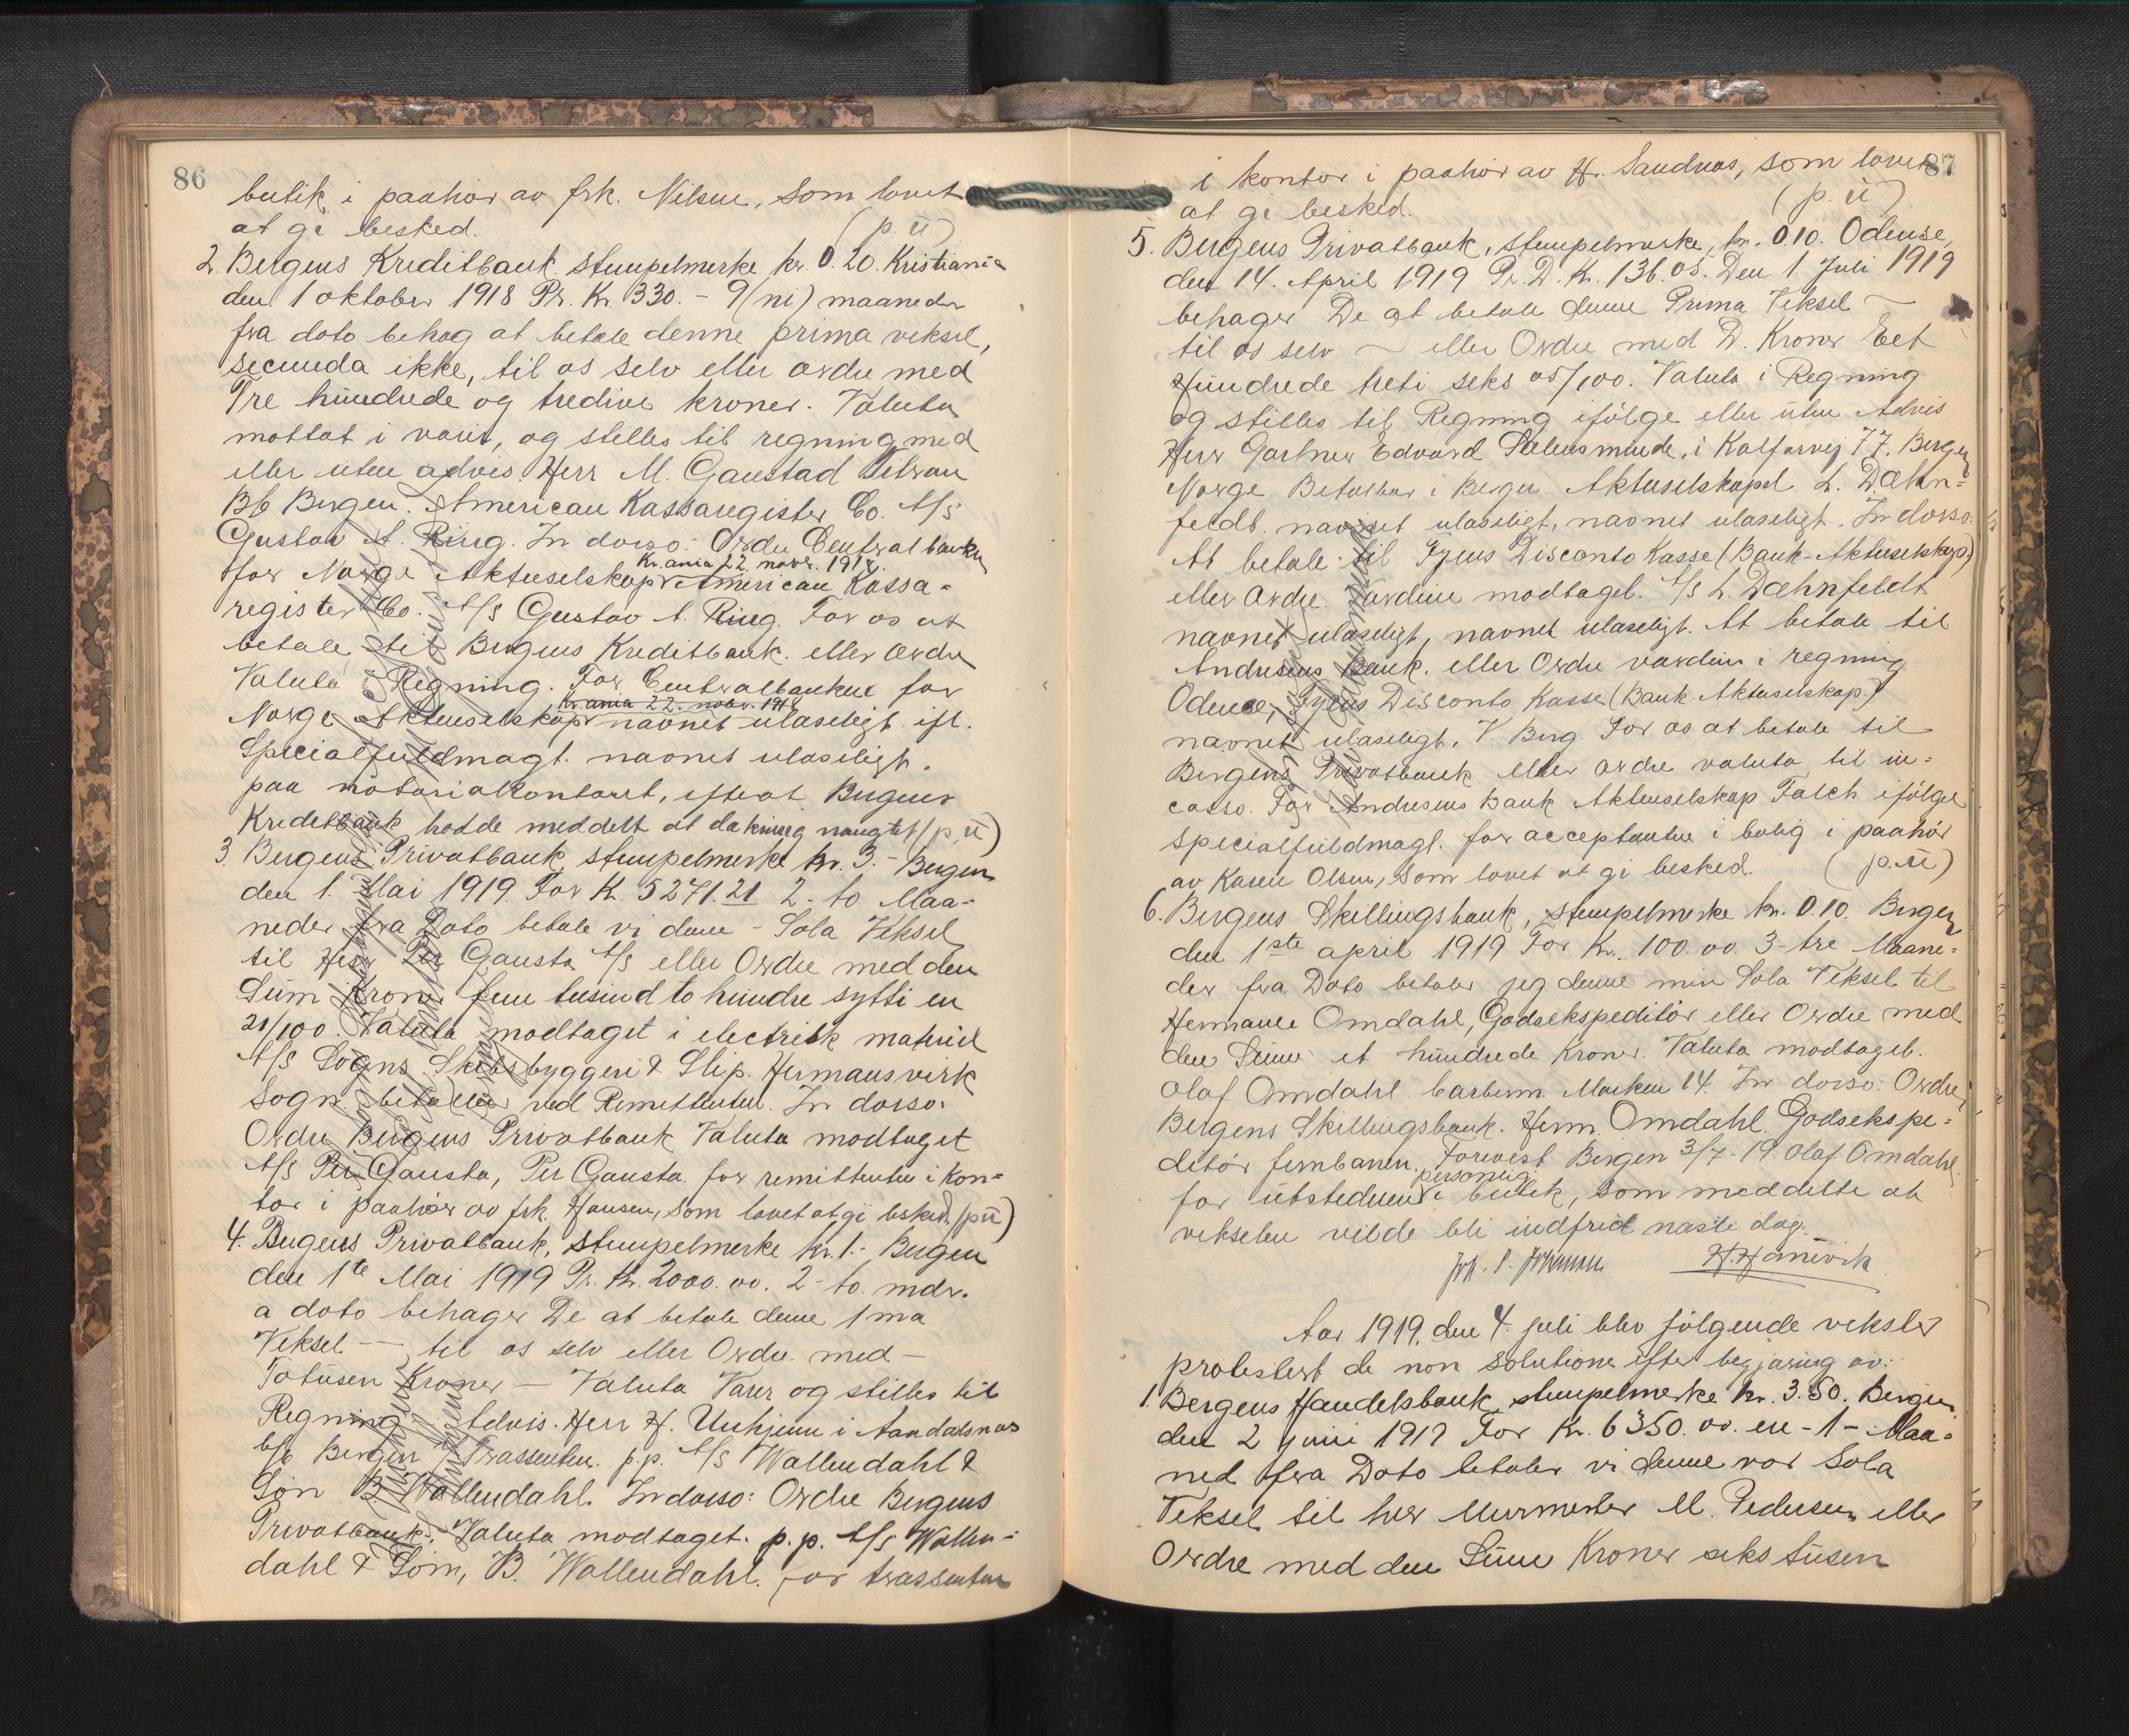 86
butik i paahør av frk. Nilsen, som lovet
at gi besked. (p. ū)
2. Bergens Kreditbank stempelmerke kr. 0.20. Kristiania
den 1 oktober 1918 Pr. Kr. 330.- 9 (ni) maaneder
fra dato behag at betale denne prima veksel,
secunda ikke, til os selv eller ordre med
Tre hūndrede og tredive kroner. Valuta
mottat i varer, og stilles til regning med
eller uten advis. Herr M. Gaustad
Bb Bergen. American Kassaregister Co. A/S
Gustav A. Ring. In dorso: Ordre Centralbanken
Kr.ania 22. novr. 1918.
for Norge Aktieselskap American Kassa-
register Co. A/S Gustav A. Ring. For os at
betale til Bergens Kreditbank. eller ordre
Valuta i Regning. For Centralbanken for
Kr.ania 22. nobr. 1918
Norge Aktieselskap navnet ulæseligt ifl.
Specialfuldmagt. navnet ulæseligt.
paa notarialkontoret, efterat Bergens
Kreditbank hadde meddelt at dækning nægtet (p. ū)
3. Bergens Privatbank, stempelmerke kr. 3.- Bergen
den 1. Mai 1919 For K. 5271.21 2- to Maa-
neder fra Dato betale vi denne - Sola Veksel
til Herr Per Gausta A/S eller Ordre med den
Sūm Kroner fem tusind to hūndre sytti en
21/100. Valuta modtaget i electrisk materiel
A/S Sogns Skibsbyggeri & Slip. Hermansvirk
Sogn. betalbar ved Remittenten. In dorso:
Ordre Bergens Privatbank Valuta modtaget
A/S Per Gausta, Per Gausta. for remittenten i Kon-
tor i paahør av frk. Hansen, som lovet at gi besked. (p ū)
4. Bergens Privatbank, stempelmerke kr. 1.- Bergen
den 1te Mai 1919 Pr. Kr. 2000.00. 2- to. mdr.
a dato behager De at betale denne 1ma
Veksel — til os selv eller Ordre. med —
Totūsen Kroner — Valuta Varer og stilles til
Regning Advis. Herr H. Unhjem i Aandalsnæs
b/b Bergen Trassenten. p.p. A/S Wallendahl &
Søn B. Wallendahl. In dorso: Ordre Bergens
Privatbank. Valuta modtaget. p.p. A/S Wallen-
dahl & Søn, B. Wallendahl. for trassenten
87
i kontor i paahør av H. Sandnæs, som lovet
at gi besked. (p. ū)
5. Bergens Privatbank, stempelmerke, kr. 0.10. Odense,
den 14. April 1919 Pr. D. K. 136.05. Den 1. Juli 1919
behager De at betale denne Prima Veksel —
til os selv — eller Ordre med D. Kroner Eet
Hūndrede treti seks 05/100. Valuta i Regning
og stilles til Regning ifølge eller ūten Advis
Herr Gartner Edvard i Kalfarvej 77. Bergen
Norge. Betalbar i Bergen. Aktieselskapet L. Dæhn-
feldt. navnet ulæseligt, navnet ulæseligt. In dorso:
At betale til Fyens Disconto Kasse (Bank-Aktieselskap)
eller Ordre. Værdien modtaget. A/S L. Dæhnfeldt
navnet ulæseligt, navnet ulæseligt. At betale til
Andresens Bank. eller Ordre værdien i regning
Odense, Fyens Disconto Kasse (Bank Aktieselskap.)
navnet ulæseligt. V. Berg. For os at betale til
Bergens Privatbank eller ordre valuta til in-
casso. For Andresens Bank Aktieselskap Falch ifølge
specialfūldmagt. for acceptanten i bolig i paahør
av Karen Olsen, som lovet at gi besked. (p. ū)
6. Bergens Skillingsbank, stempelmerke kr. 0.10. Bergen
den 1ste april 1919 For Kr. 100.00 3- tre Maane-
der fra Dato betaler jeg denne min Sola Veksel til
Hermann Omdahl, Godsekspeditør eller Ordre med
den Sūm et hūndrede Kroner. Valuta modtaget.
Olaf Omdahl barberm. Marken 14. In dorso: Ordre
Bergens Skillingsbank. Herm Omdahl Godsekspe-
ditør jernbanen. Forevist Bergen 3/7-19. Olaf Omdahl
personlig
for ūtstederen i butik, som meddelte at
vekselen vilde bli indfriet næste dag.
Aar 1919, den 4. juli blev følgende veksler
protestert de non solutione efter begjæring av:
1. Bergens Handelsbank, stempelmerke kr. 3.50. Bergen
den 2 juni 1919 For Kr. 6350.00. en - 1 - Maa-
ned fra Dato betaler vi denne vor Sola
Veksel til herr Murmester M. Pedersen eller
Ordre med den Sūm Kroner seks tūsen